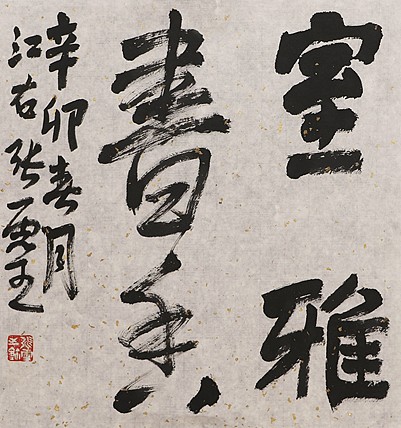 室雅
書香
辛卯春月
江右张